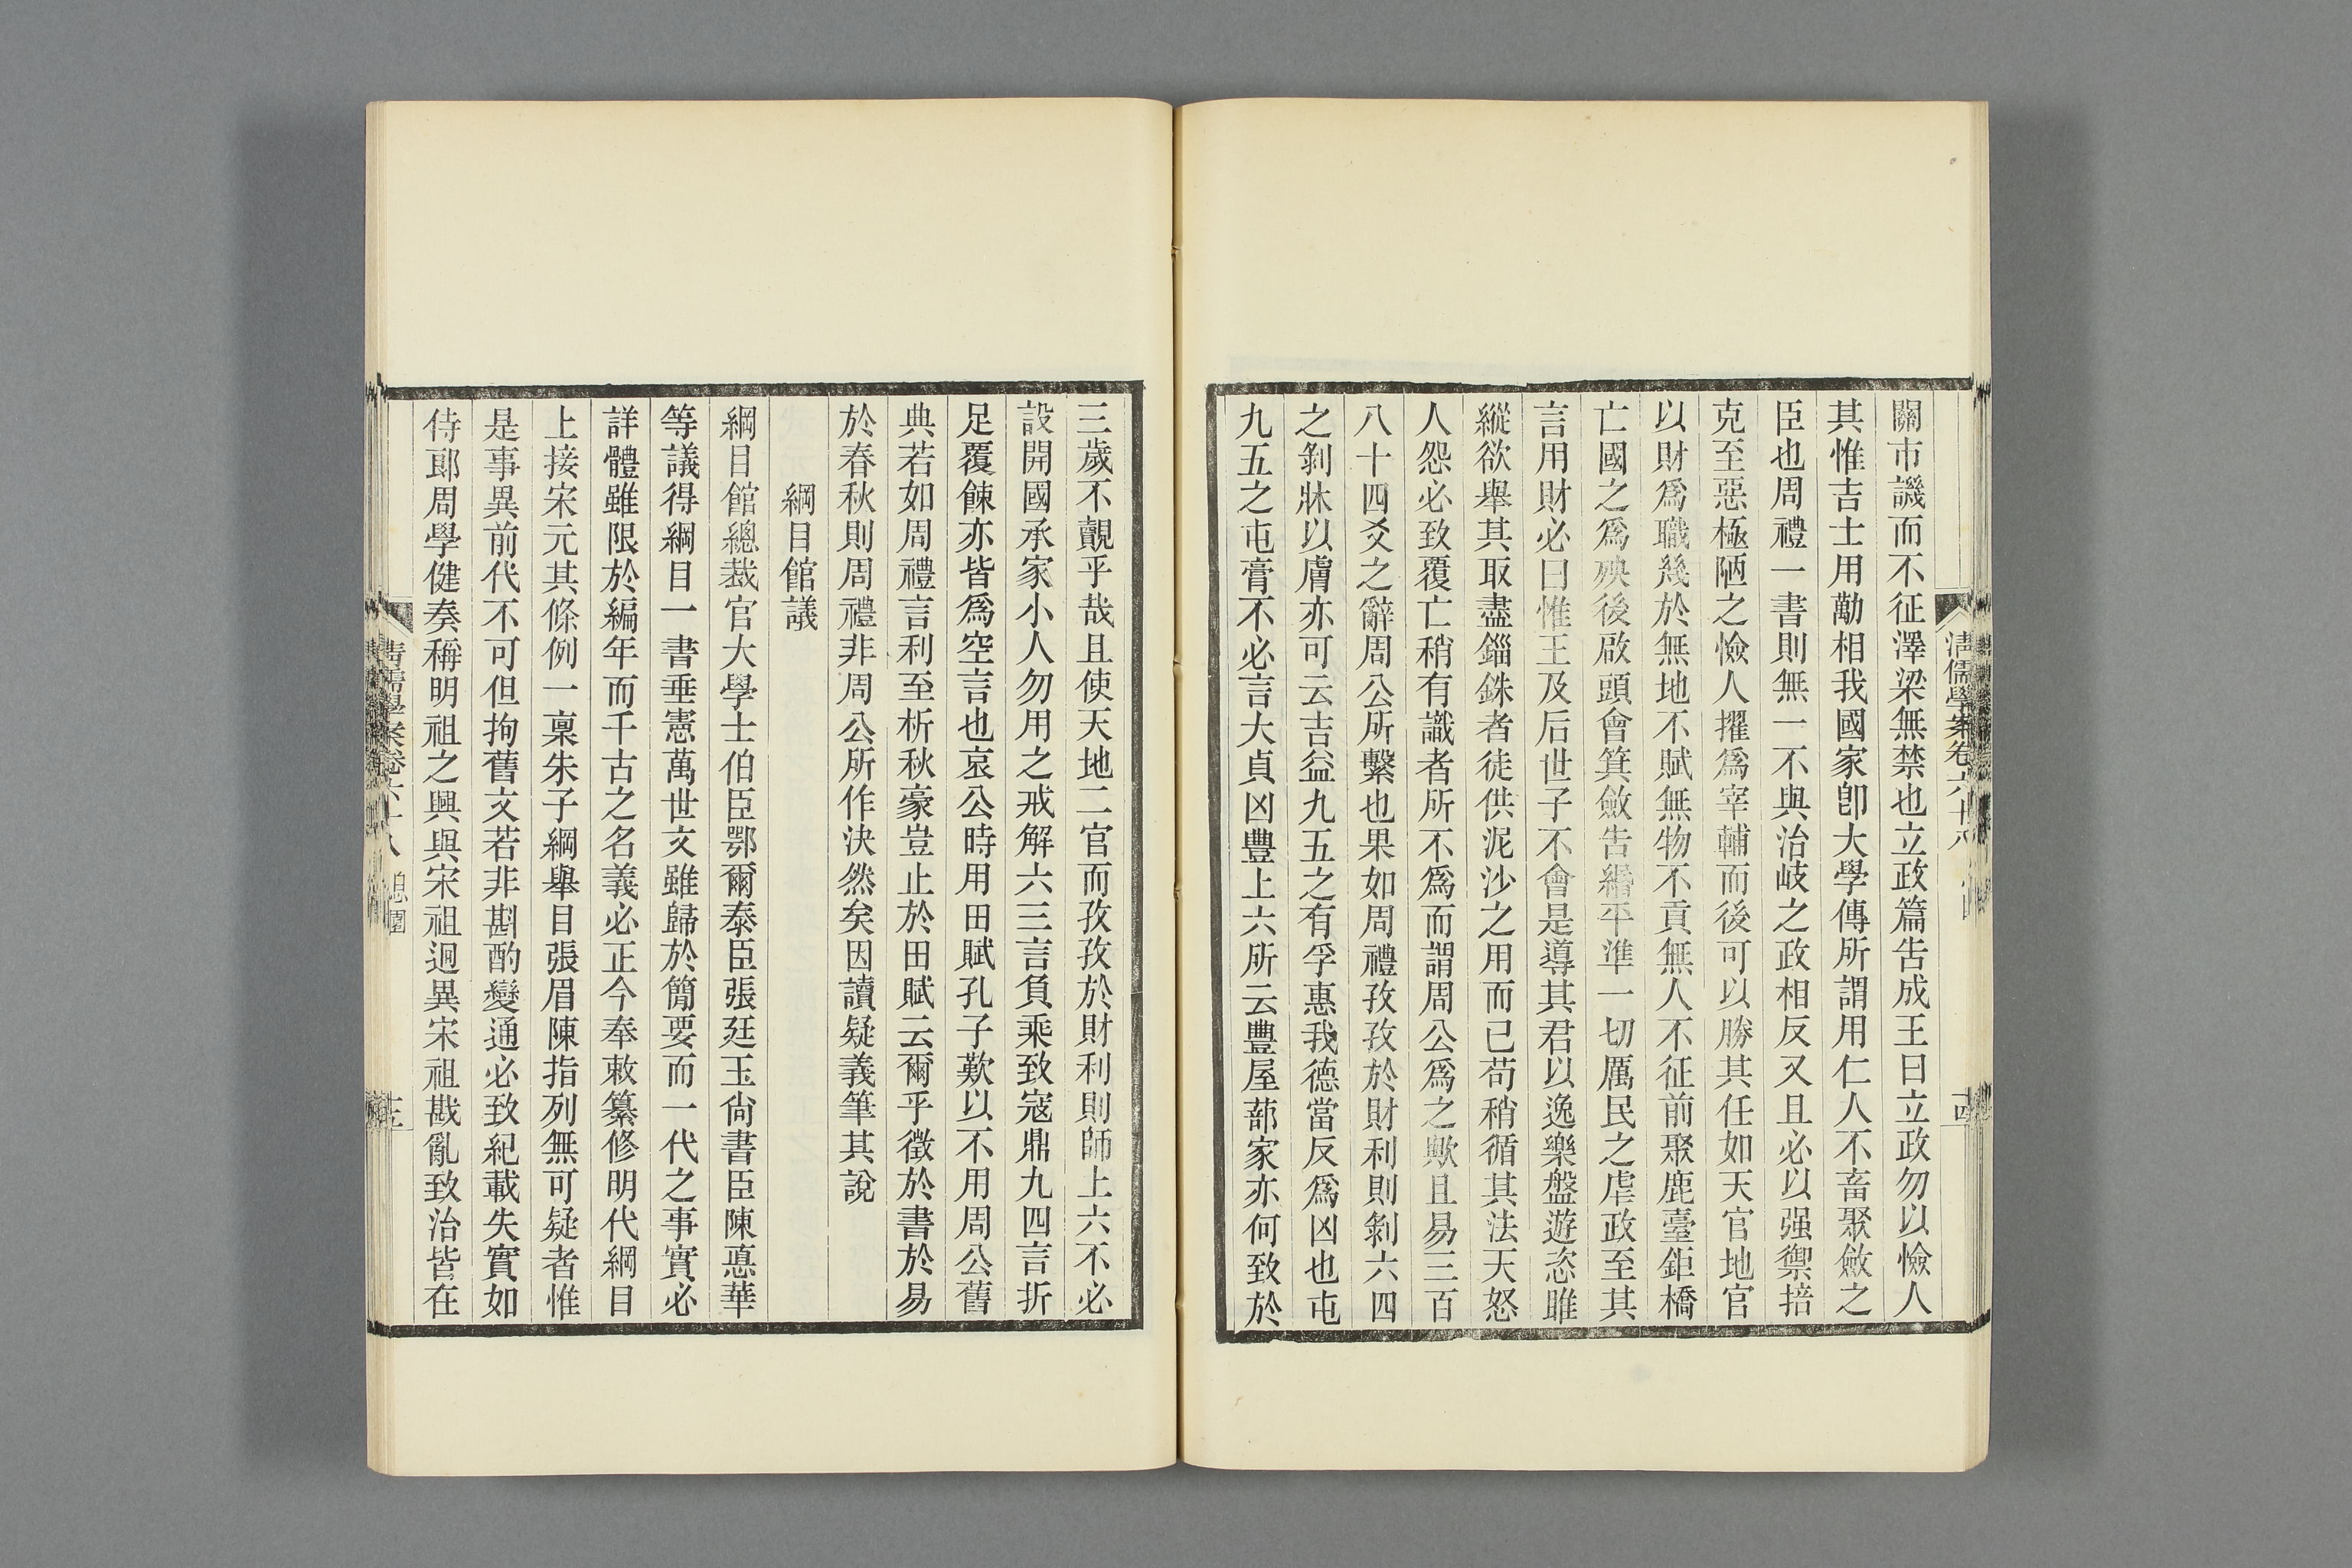 清儒學案卷六十八
關市譏而不征澤梁無禁也立政篇吿成王曰立政勿以憸人
其惟吉士用勱相我國家卽大學傳所謂用仁人不畜聚斂之
臣也周禮一書則無一不與治岐之政相反又且必以强禦掊
克至惡極陋之憸人擢爲宰輔而後可以勝其任如天官地官
以財爲職幾於無地不賦無物不貢無人不征前聚鹿臺鉅橋
亡國之爲殃後啟頭會箕斂吿緡平準一切厲民之虐政至其
言用財必曰惟王及后世子不會是導其君以逸樂盤遊恣睢
縱欲舉其取盡錙銖者徒供泥沙之用而已苟稍循其法天怒
人怨必致覆亡稍有識者所不爲而謂周公爲之歟且易三百
八十四爻之辭周公所繫也果如周禮孜孜於財利則剝六四
之剝牀以膚亦可云吉益九五之有孚惠我德當反爲凶也屯
九五之屯膏不必言大貞凶豐上六所云豐屋蔀家亦何致於
三歲不覿乎哉且使天地二官而孜孜於財利則師上六不必
設開國承家小人勿用之戒解六三言負乘致寇鼎九四言折
足覆餗亦皆爲空言也哀公時用田賦孔子歎以不用周公舊
典若如周禮言利至析秋豪豈止於田賦云爾乎徵於書於易
於春秋則周禮非周公所作決然矣因讀疑義筆其說
綱目館議
綱目館總裁官大學士伯臣鄂爾泰臣張廷玉尙書臣陳悳華
等議得綱目一書垂憲萬世文雖歸於簡要而一代之事實必
詳體雖限於編年而千古之名義必正今奉敕纂修明代綱目
上接宋元其條例一稟朱子綱舉目張眉陳指列無可疑者惟
是事異前代不可但拘舊文若非斟酌變通必致紀載失實如
侍郞周學健奏稱明祖之興與宋祖迥異宋祖戡亂致治皆在